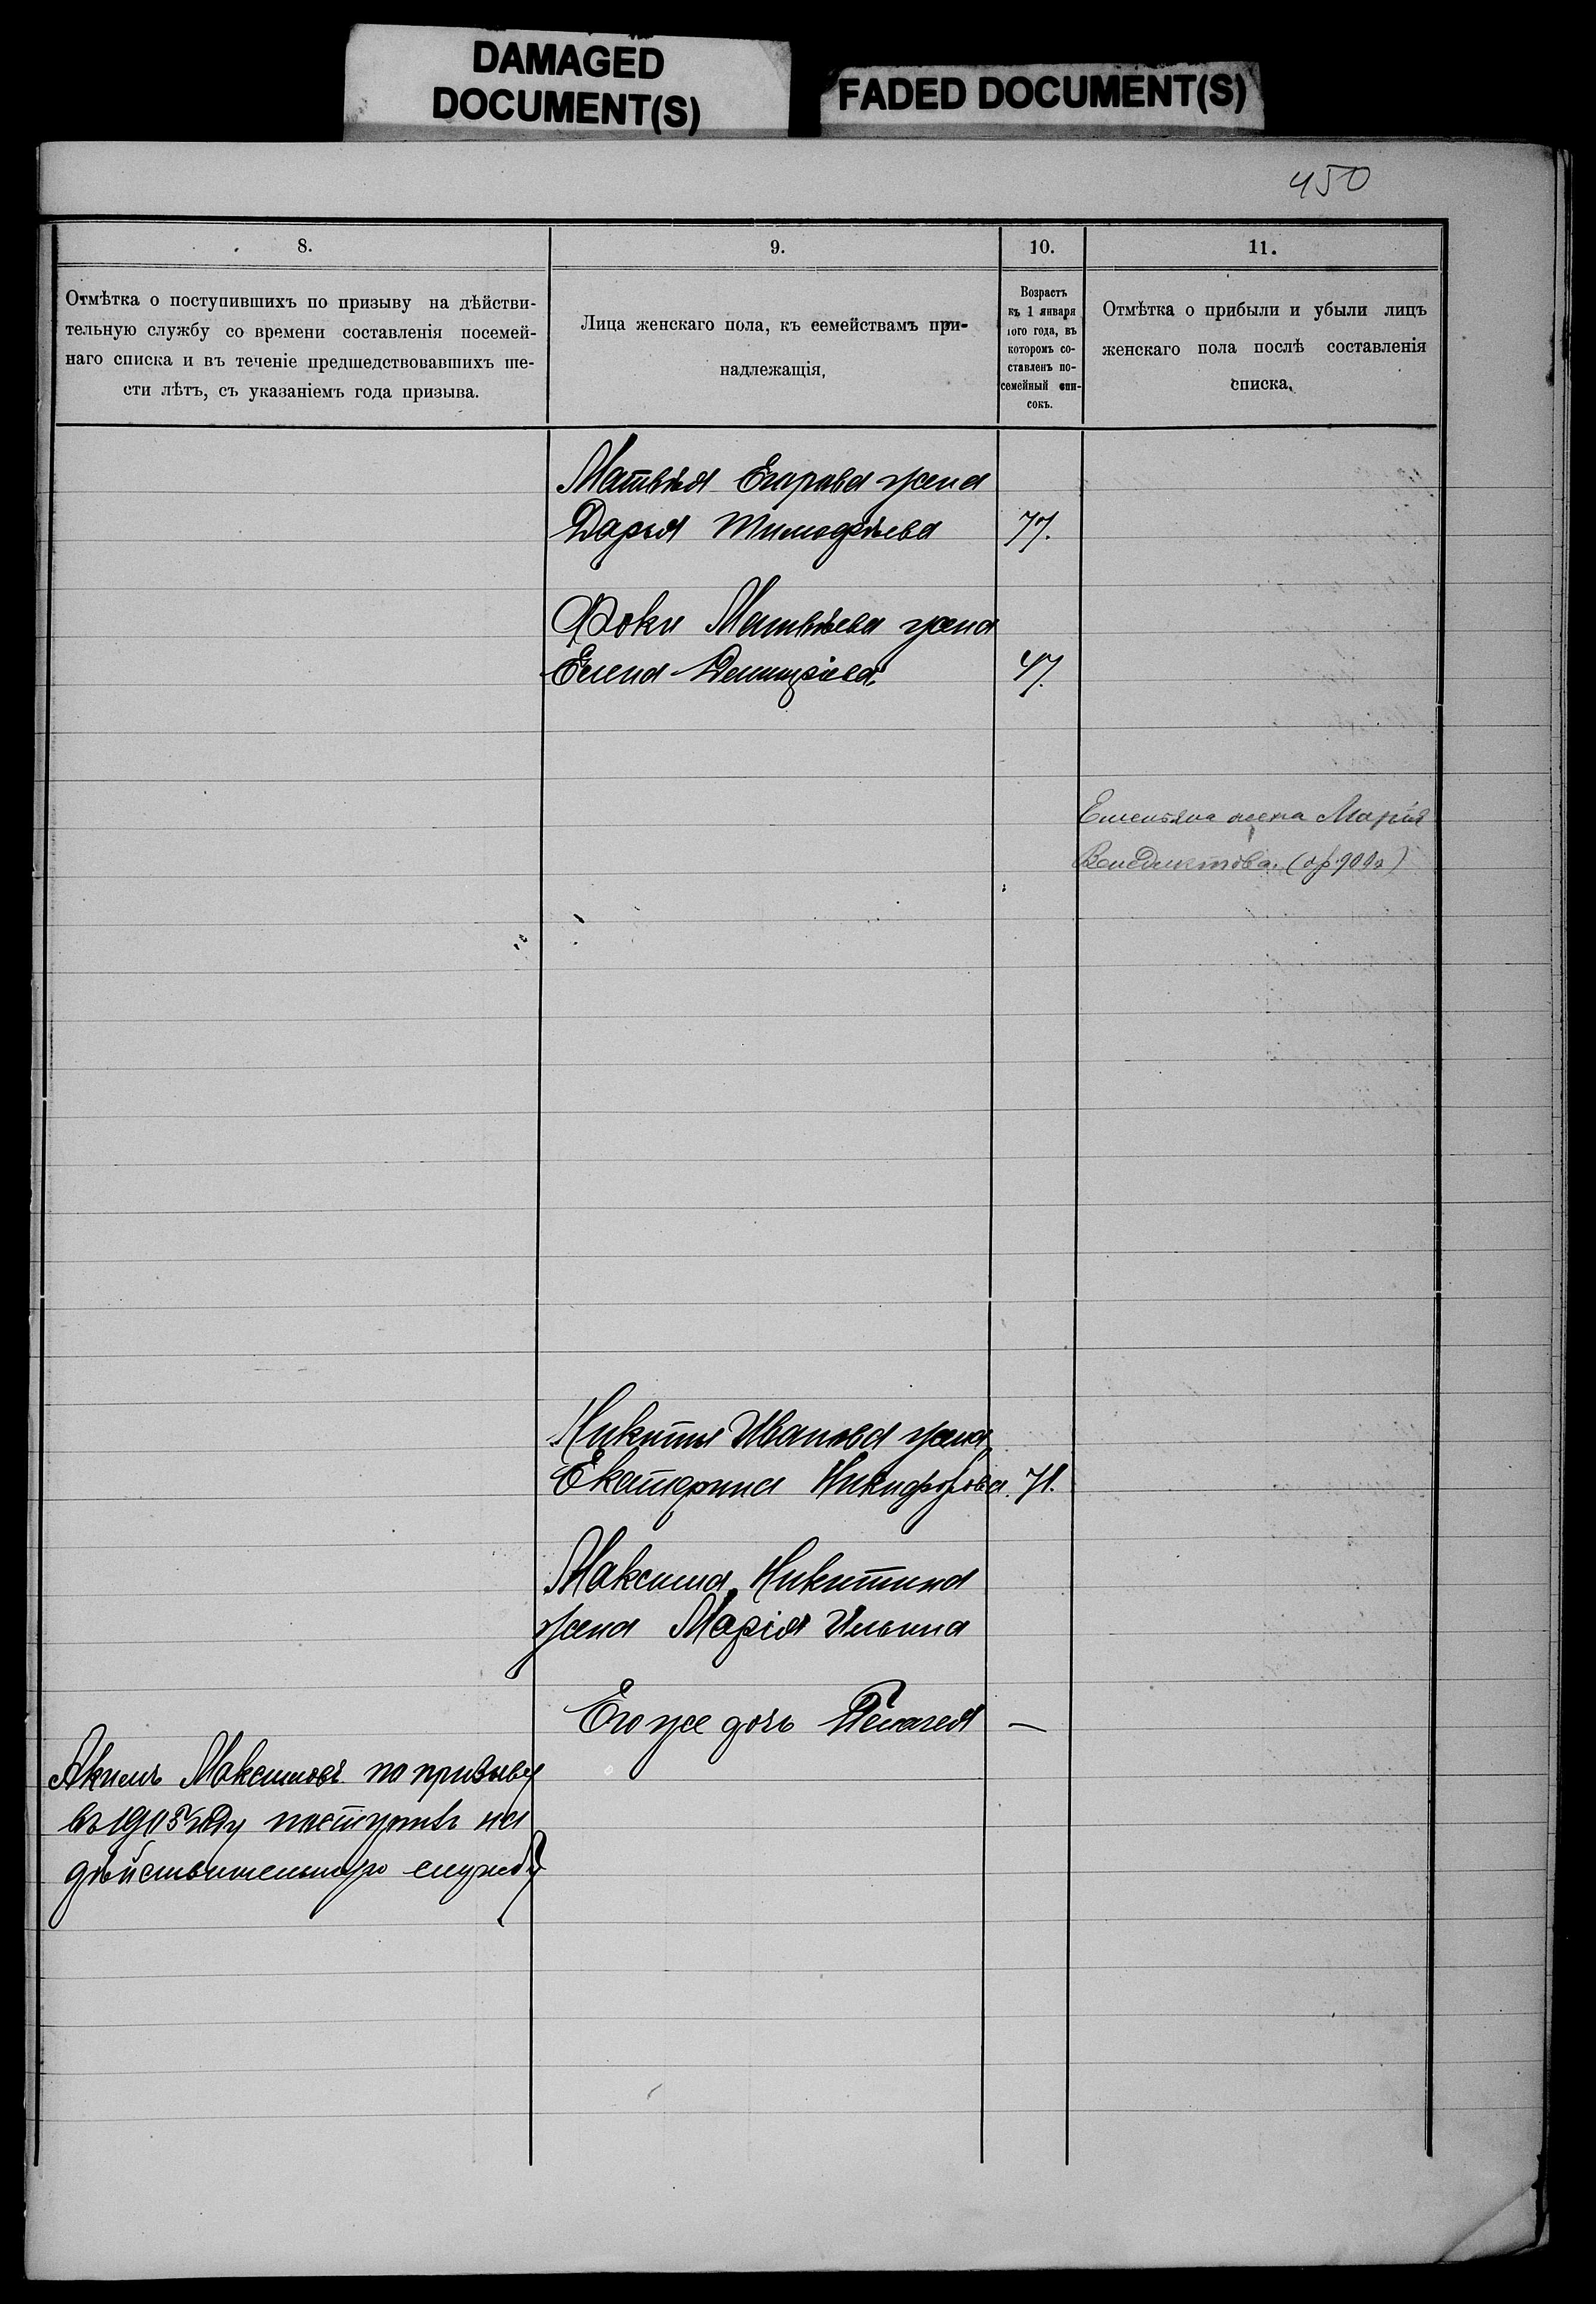 DAMAGED
DOCUMENT(S)
FADED DOCUMENT(S)
450
8.
9.
10.
11.
Отмѣтка о поступившихъ по призыву на дѣйстви-
тельную службу со времени составленія посемей-
наго списка и въ теченіе предшедствовавшихъ ше-
сти лѣтъ, съ указаніемъ года призыва.
Лица женскаго пола, къ семействамъ при-
надлежащія,
Возрастъ
къ 1 января
того года, въ
которомъ со-
ставленъ по-
семейный спи-
сокъ.
Отмѣтка о прибыли и убыли лицъ
женскаго пола послѣ составленія
списка.
Матвѣя Егорова жена
Дарья Тимофѣева 77.
Фоки Матвѣева жена
Елена Димитріева 47.
Емельяна жена Марія
Венедиктова.
Никиты Иванова жена
Екатерина Никифорова. 71.
Максима Никитина
жена Марія Ильина
Его же дочь Пелагея —
Акимъ Максимовъ по призыву
въ 1905 году поступилъ на
дѣйствительную службу